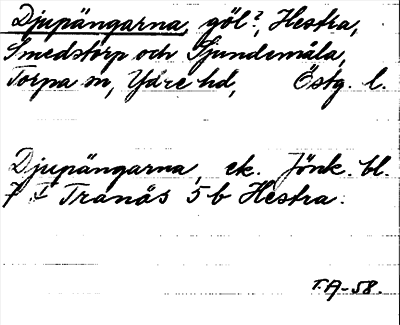 Djupängarna, göl?, Hestra,
Smedstorp och Sjundemåla,
Torpa sn, Ydre hd, Östg. l.
Djupängarna, ek. Jönk. bl.
7 F Tranås 5 b Hestra.
T.A-58.